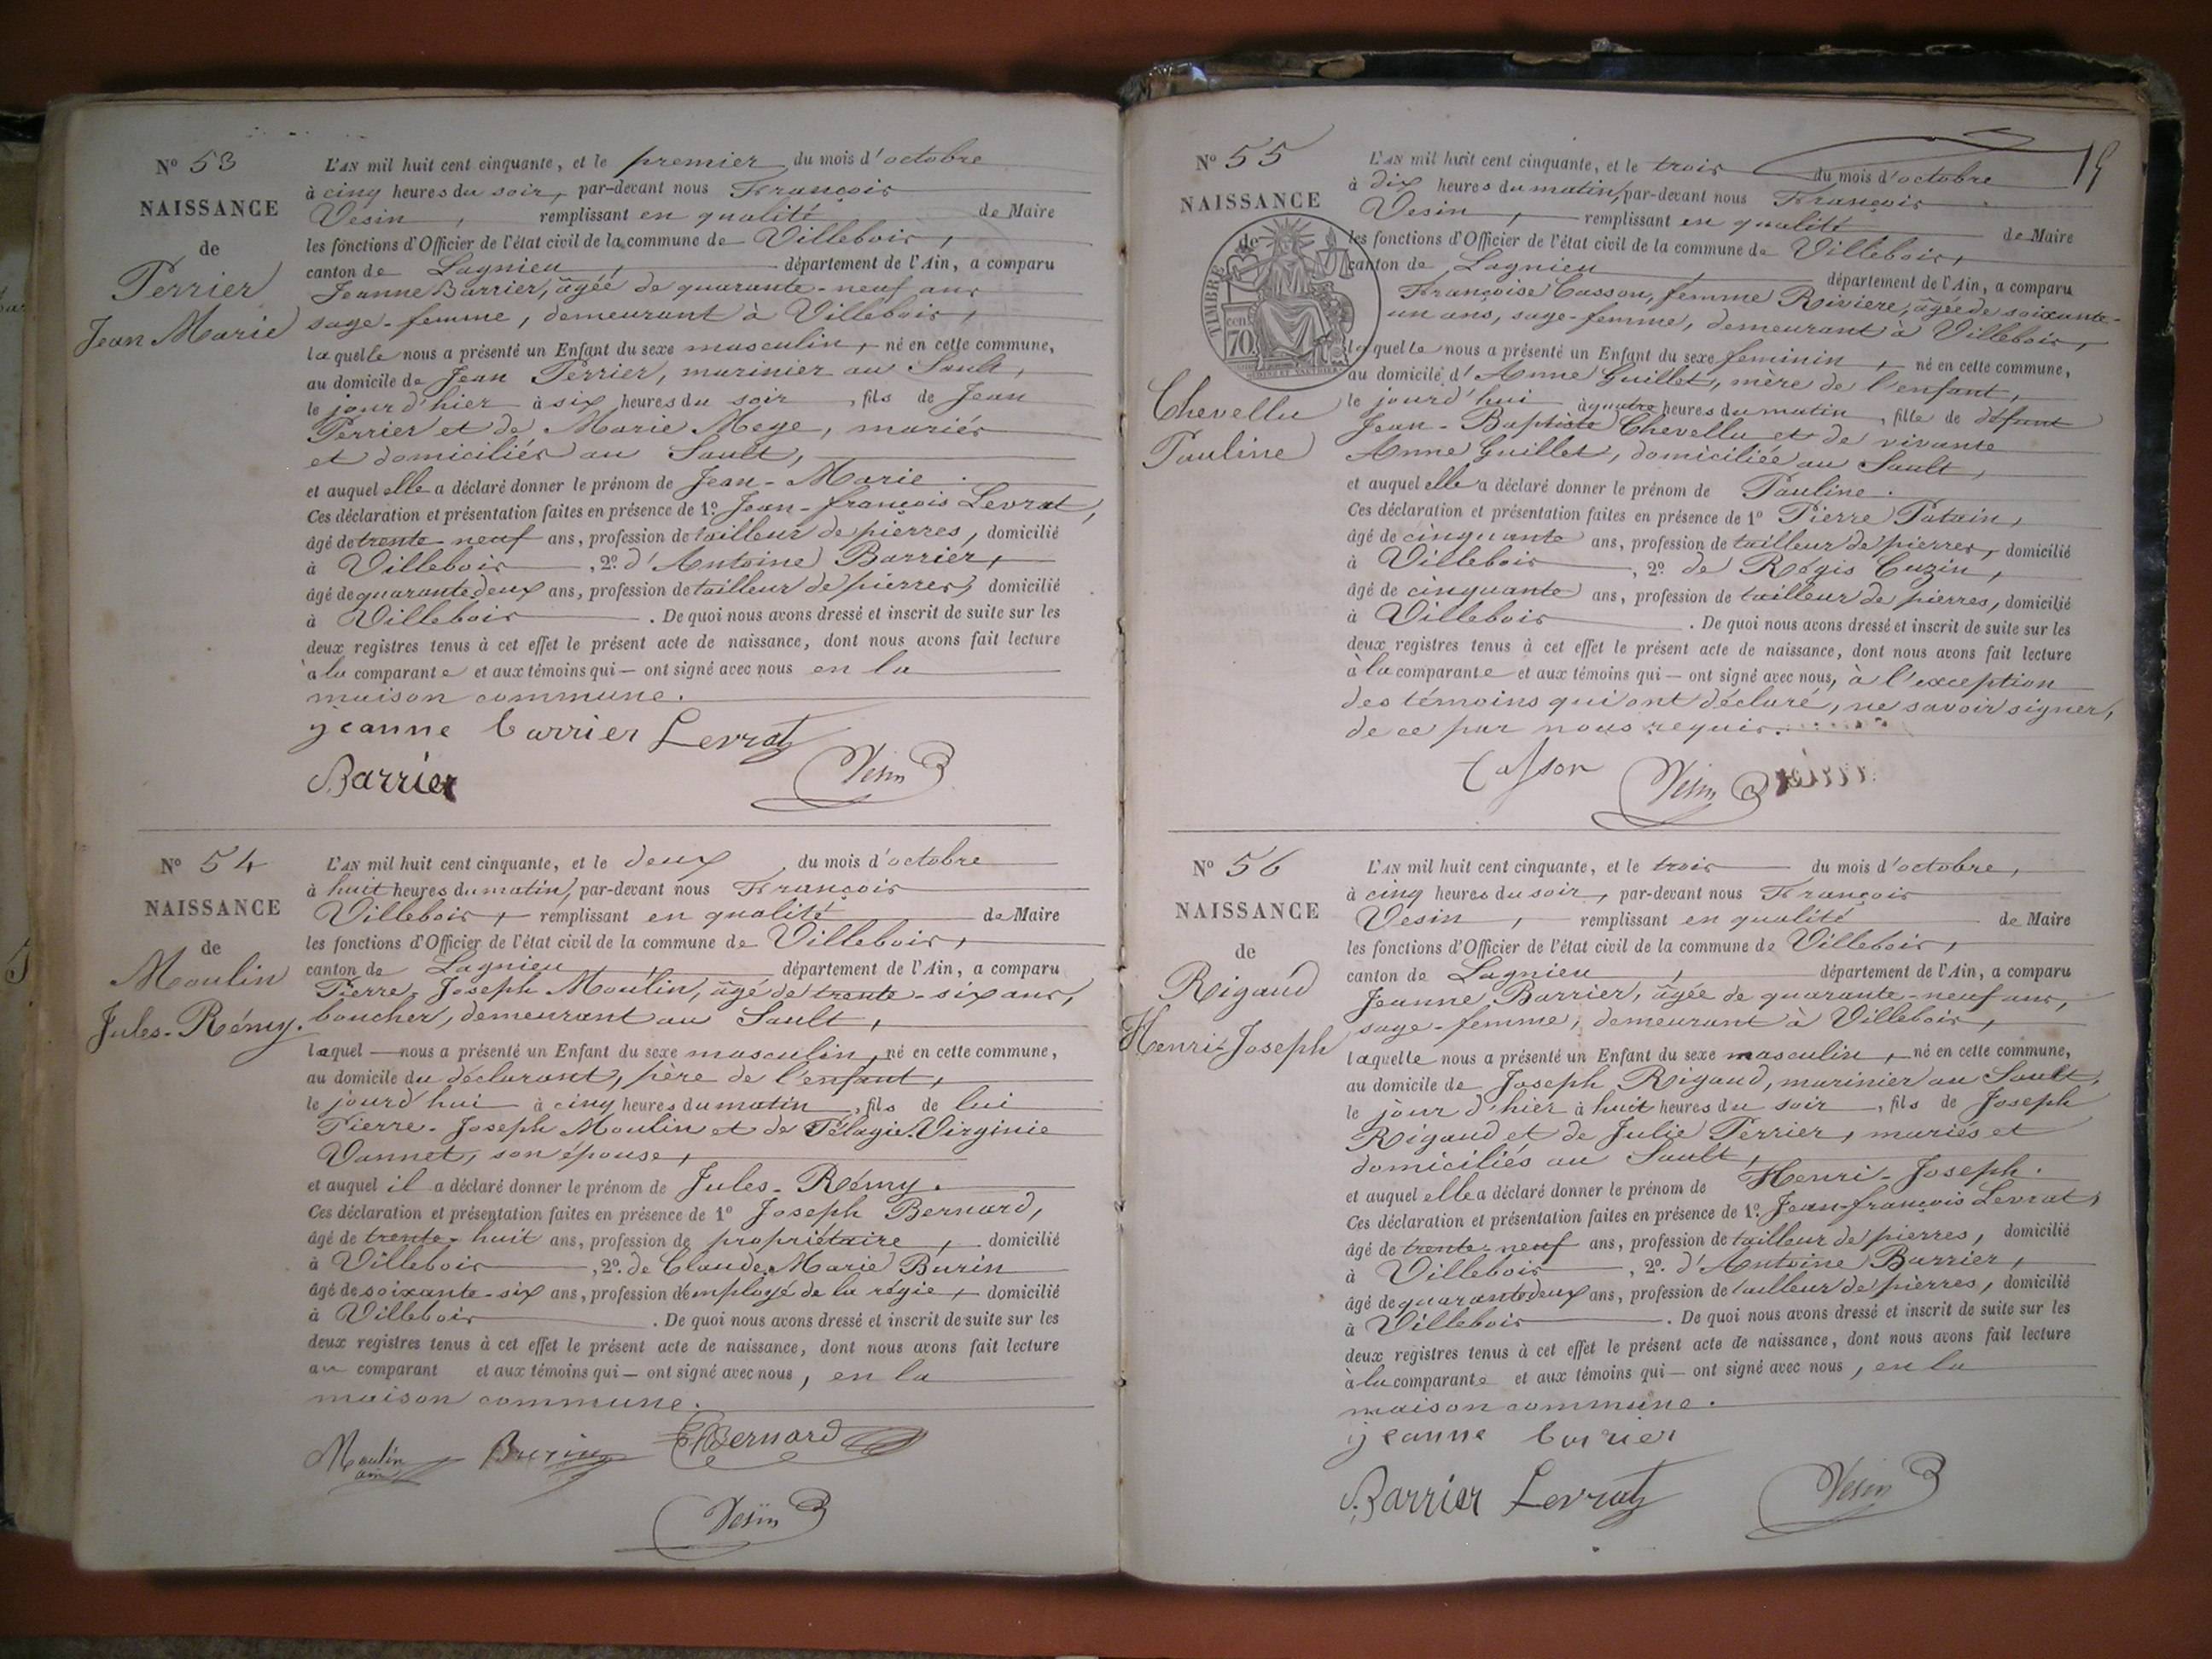 N° 53
NAISSANCE
de
Perrier
Jean Marie
L'AN mil huit cent cinquante, et le premier du mois d'octobre
à cinq heures du soir, par-devant nous François
Vesin, remplissant en qualité de Maire
les fonctions d'Officier de l'état civil de la commune de Villebois,
canton de Lagnieu, département de l'Ain, a comparu
Jeanne Barrier, âgée de quarante-neuf ans
sage-femme, demeurant à Villebois,
laquelle nous a présenté un Enfant du sexe masculin, né en cette commune,
au domicile de Jean Perrier, marinier au Sault,
le jour d'hier à six heures du soir, fils de Jean
Perrier et de Marie Meye, mariés
et domiciliés au Sault,
et auquel elle a déclaré donner le prénom de Jean-Marie.
Ces déclaration et présentation faites en présence de 1° Jean-françois Levrat,
âgé de trente-neuf ans, profession de tailleur de pierres, domicilié
à Villebois, 2° d'Antoine Barrier,
âgé de quarante deux ans, profession de tailleur de pierres, domicilié
à Villebois. De quoi nous avons dressé et inscrit de suite sur les
deux registres tenus à cet effet le présent acte de naissance, dont nous avons fait lecture
à la comparante et aux témoins qui — ont signé avec nous en la
maison commune.
jeanne barrier Levrat
Barrier Vesin
N° 54
NAISSANCE
de
Moulin
Jules-Rémy.
L'AN mil huit cent cinquante, et le deux, du mois d'octobre
à huit heures du matin, par-devant nous François
Villebois, remplissant en qualité de Maire
les fonctions d'Officier de l'état civil de la commune de Villebois,
canton de Lagnieu, département de l'Ain, a comparu
Pierre-Joseph Moulin, âgé de trente-six ans,
boucher, demeurant au Sault,
laquel — nous a présenté un Enfant du sexe masculin, né en cette commune,
au domicile du déclarant, père de l'enfant,
le jourd'hui à cinq heures du matin, fils de lui
Pierre-Joseph Moulin et de Pélagie Virginie
Vannet, son épouse,
et auquel il a déclaré donner le prénom de Jules-Rémy.
Ces déclaration et présentation faites en présence de 1° Joseph Bernard,
âgé de trente-huit ans, profession de propriétaire, domicilié
à Villebois, 2° de Claude Marie Burin
âgé de soixante-six ans, profession d'employé de la régie, domicilié
à Villebois. De quoi nous avons dressé et inscrit de suite sur les
deux registres tenus à cet effet le présent acte de naissance, dont nous avons fait lecture
au comparant et aux témoins qui — ont signé avec nous, en la
maison commune.
Moulin Burin Bernard
Vesin
N° 55
NAISSANCE
de
TIMBRE
70
Chevellu
Pauline
L'AN mil huit cent cinquante, et le trois du mois d'octobre
à dix heures du matin, par-devant nous François
Vesin, remplissant en qualité de Maire
les fonctions d'Officier de l'état civil de la commune de Villebois,
canton de Lagnieu, département de l'Ain, a comparu
Françoise Casson, femme Riviere, âgée de soixante-
un ans, sage-femme, demeurant à Villebois,
laquelle nous a présenté un Enfant du sexe feminin, né en cette commune,
au domicile d'Anne Guillet, mère de l'enfant,
le jourd'hui à quatre heures du matin, fille de défunt
Jean-Baptiste Chevellu et de vivante
Anne Guillet, domiciliée au Sault,
et auquel elle a déclaré donner le prénom de Pauline.
Ces déclaration et présentation faites en présence de 1° Pierre Patain,
âgé de cinquante ans, profession de tailleur de pierres, domicilié
à Villebois, 2° de Régis Cuzin,
âgé de cinquante ans, profession de tailleur de pierres, domicilié
à Villebois. De quoi nous avons dressé et inscrit de suite sur les
deux registres tenus à cet effet le présent acte de naissance, dont nous avons fait lecture
à la comparante et aux témoins qui — ont signé avec nous, à l'exception
des témoins qui ont déclaré, ne savoir signer,
de ce par nous requis.
Casson Vesin
N° 56
NAISSANCE
de
Rigaud
Henri-Joseph
L'AN mil huit cent cinquante, et le trois du mois d'octobre,
à cinq heures du soir, par-devant nous François
Vesin, remplissant en qualité de Maire
les fonctions d'Officier de l'état civil de la commune de Villebois,
canton de Lagnieu, département de l'Ain, a comparu
Jeanne Barrier, âgée de quarante-neuf ans,
sage-femme, demeurant à Villebois,
laquelle nous a présenté un Enfant du sexe masculin, né en cette commune,
au domicile de Joseph Rigaud, marinier au Sault,
le jour d'hier à huit heures du soir, fils de Joseph
Rigaud et de Julie Perrier, mariés et
domiciliés au Sault,
et auquel elle a déclaré donner le prénom de Henri-Joseph.
Ces déclaration et présentation faites en présence de 1° Jean-françois Levrat,
âgé de trente-neuf ans, profession de tailleur de pierres, domicilié
à Villebois, 2° d'Antoine Barrier,
âgé de quarante deux ans, profession de tailleur de pierres, domicilié
à Villebois. De quoi nous avons dressé et inscrit de suite sur les
deux registres tenus à cet effet le présent acte de naissance, dont nous avons fait lecture
à la comparante et aux témoins qui — ont signé avec nous, en la
maison commune.
jeanne barier
Barrier Levrat Vesin